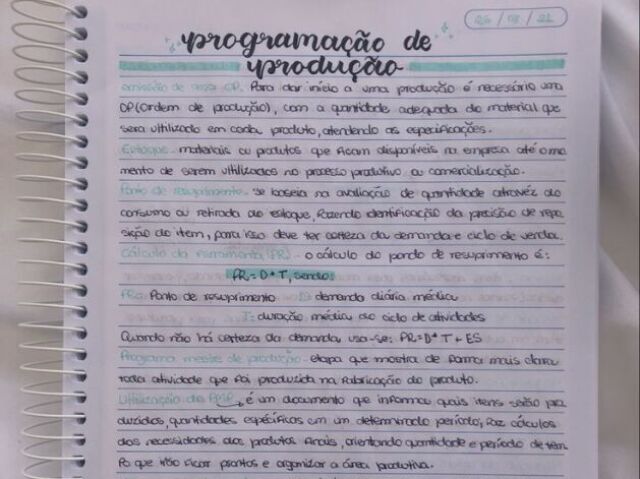 programação de
produção
emissão de uma OP. Para dar início a uma produção é necessário uma
OP (ordem de produção), com a quantidade adequada do material que
sera ultilizado em cada produto, atendendo as especificações.
Estoque - materiais ou produtos que ficam disponíveis na empresa até o mo
mento de serem ultilizados no processo produtivo ou comercialização.
Ponto de resuprimento - se baseia na avaliação de quantidade atravéz do
consumo ou retirada do estoque, fazendo identificação da precisão de repo
sição do item, para isso deve ter certeza da demanda e ciclo de venda.
Cálculo da ferramenta (PR) - o cálculo do pondo de resuprimento é:
PR = D * T, sendo:
PR: Ponto de resuprimento D: demanda diária média
T: duração média do ciclo de atividades
Quando não há certeza da demanda, usa-se: PR = D * T + ES
Programa mestre de produção - etapa que mostra de forma mais clara
toda atividade que foi produzida na fabricação do produto.
Utilização do é um documento que informa quais itens serão pro
duzidos, quantidades específicas em um determinado período, faz cálculos
das necessidades dos produtos finais, orientando quantidade e período de tem
Po que irão ficar prontos e organizar a área produtiva.